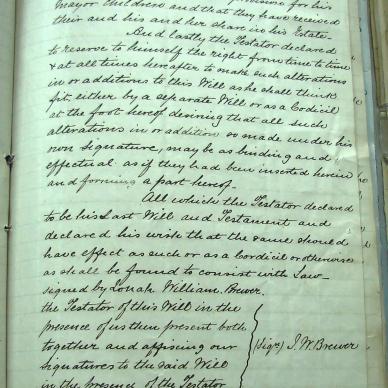 Mayor children and that they have received
their and his and her share in his Estate
And lastly the Testator declared
to reserve to himself the right from time to time
& at all times hereafter to make such alterations
in or additions to this Will as he shall think
fit either by a separate Will or as a Codicil
at the foot hereof desiring that all such
alterations in or addition so made under his
own signature, may be as binding and
effectual as if they had been inserted herein
and forming a part hereof.
All which the Testator declared
to be his Last Will and Testament and
declared his wish that the same should
have effect as such or as a Cordicil or otherwise
as shall be found to consist with Law
signed by William. Brewer.
the Testator of this Will in the
presence of us then present both
together and affixing our
signatures to the said Will
in the presence of the Testator
(Sigd) J. W. Brewer